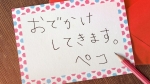 おでかけ
してきます。
ペコ